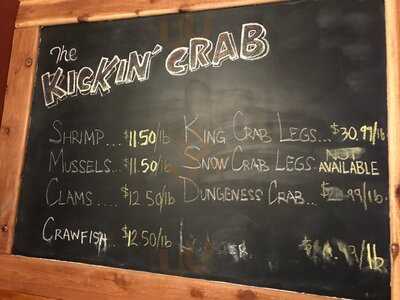 The
KICKIN' CRAB
SHRIMP... $11.50/lb
MUSSELS... $11.50/lb
CLAMS.... $12.50/lb
CRAWFISH... $12.50/lb
KING CRAB LEGS... $30.99/lb
SNOW CRAB LEGS NOT AVAILABLE
DUNGENESS CRAB... /lb
/lb